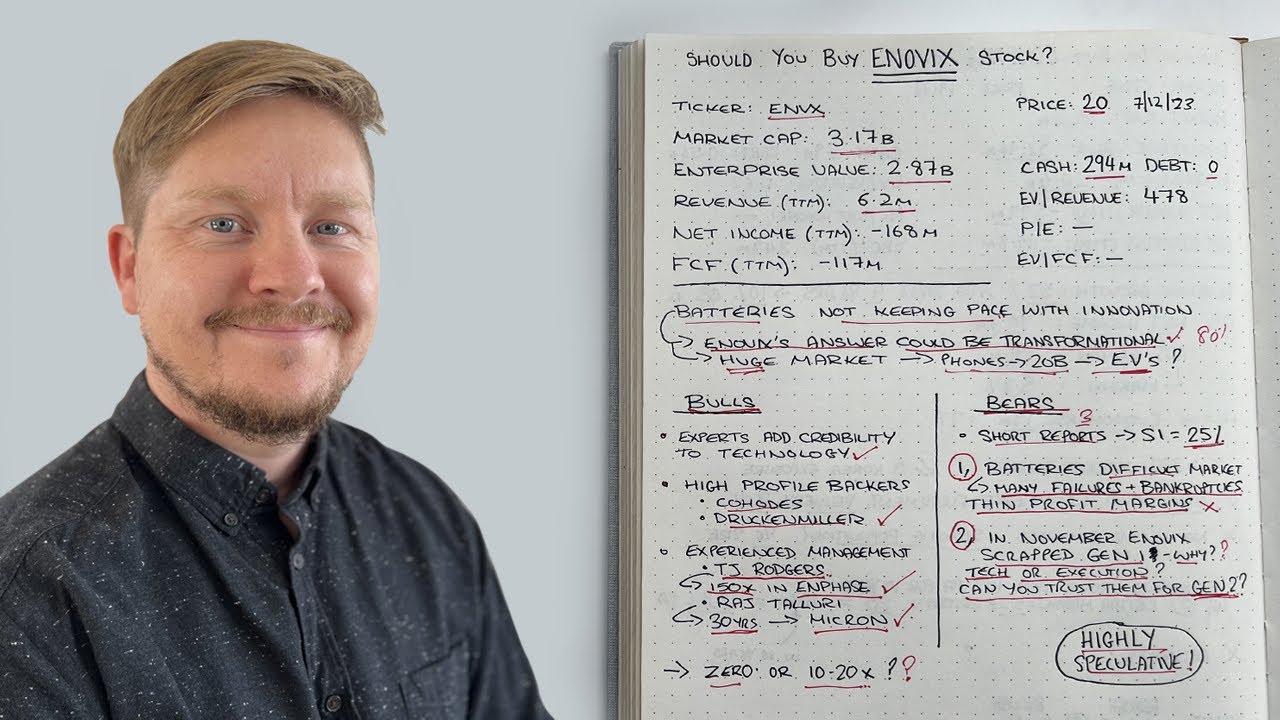 SHOULD YOU BUY ENOVIX STOCK?
TICKER: ENVX
PRICE: 20 7/12/23
MARKET CAP: 3.17B
ENTERPRISE VALUE: 2.87B
CASH: 294M DEBT: 0
REVENUE (TTM): 6.2M
EV/REVENUE: 478
NET INCOME (TTM): -168M
P/E: —
FCF (TTM): -117M
EV/FCF: —
BATTERIES NOT KEEPING PACE WITH INNOVATION
→ ENOVIX'S ANSWER COULD BE TRANSFORMATIONAL ✓ 80%
→ HUGE MARKET → PHONES → 20B → EV'S ?
BULLS
• EXPERTS ADD CREDIBILITY
TO TECHNOLOGY ✓
• HIGH PROFILE BACKERS
• COHODES
• DRUCKENMILLER ✓
• EXPERIENCED MANAGEMENT
• TJ RODGERS
→ 150X IN ENPHASE ✓
• RAJ TALLURI
→ 30YRS → MICRON ✓
BEARS
3
• SHORT REPORTS → SI = 25%
1, BATTERIES DIFFICULT MARKET
→ MANY FAILURES + BANKRUPTCIES
THIN PROFIT MARGINS X
2, IN NOVEMBER ENOVIX
SCRAPPED GEN 1 - WHY??
TECH OR EXECUTION?
CAN YOU TRUST THEM FOR GEN2?
→ ZERO OR 10-20X ??
HIGHLY
SPECULATIVE!